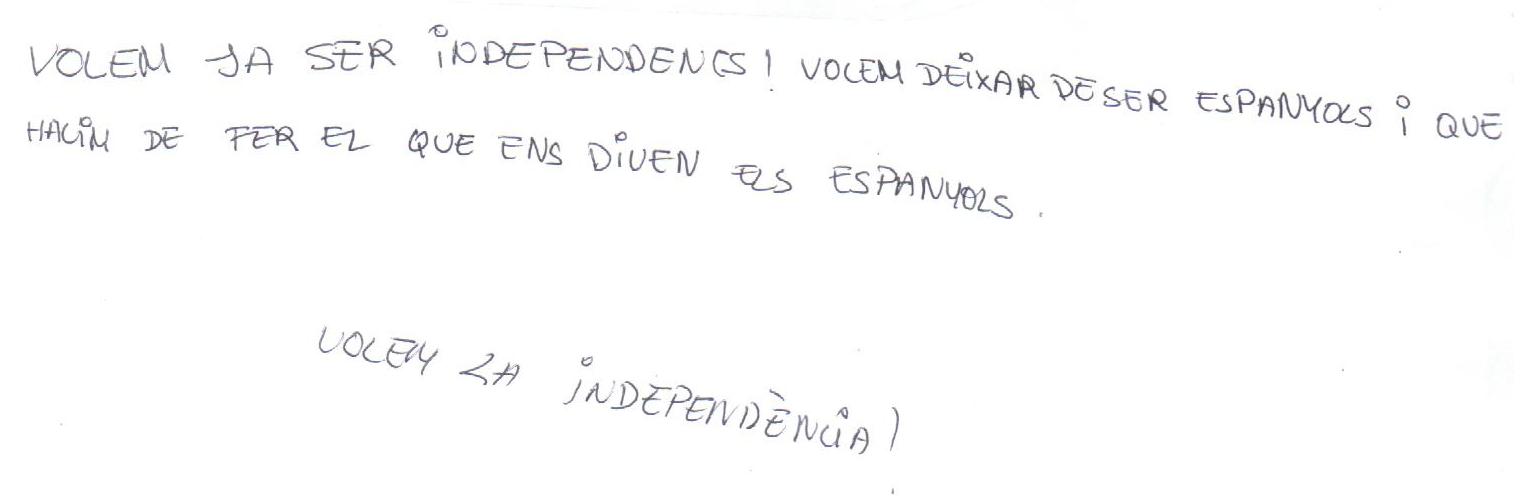 VOLEM JA SER INDEPENDENCS! VOLEM DEIXAR DE SER ESPANYOLS I QUE
HAGIM DE FER EL QUE ENS DIUEN ELS ESPANYOLS.
VOLEM LA INDEPENDÈNCIA!